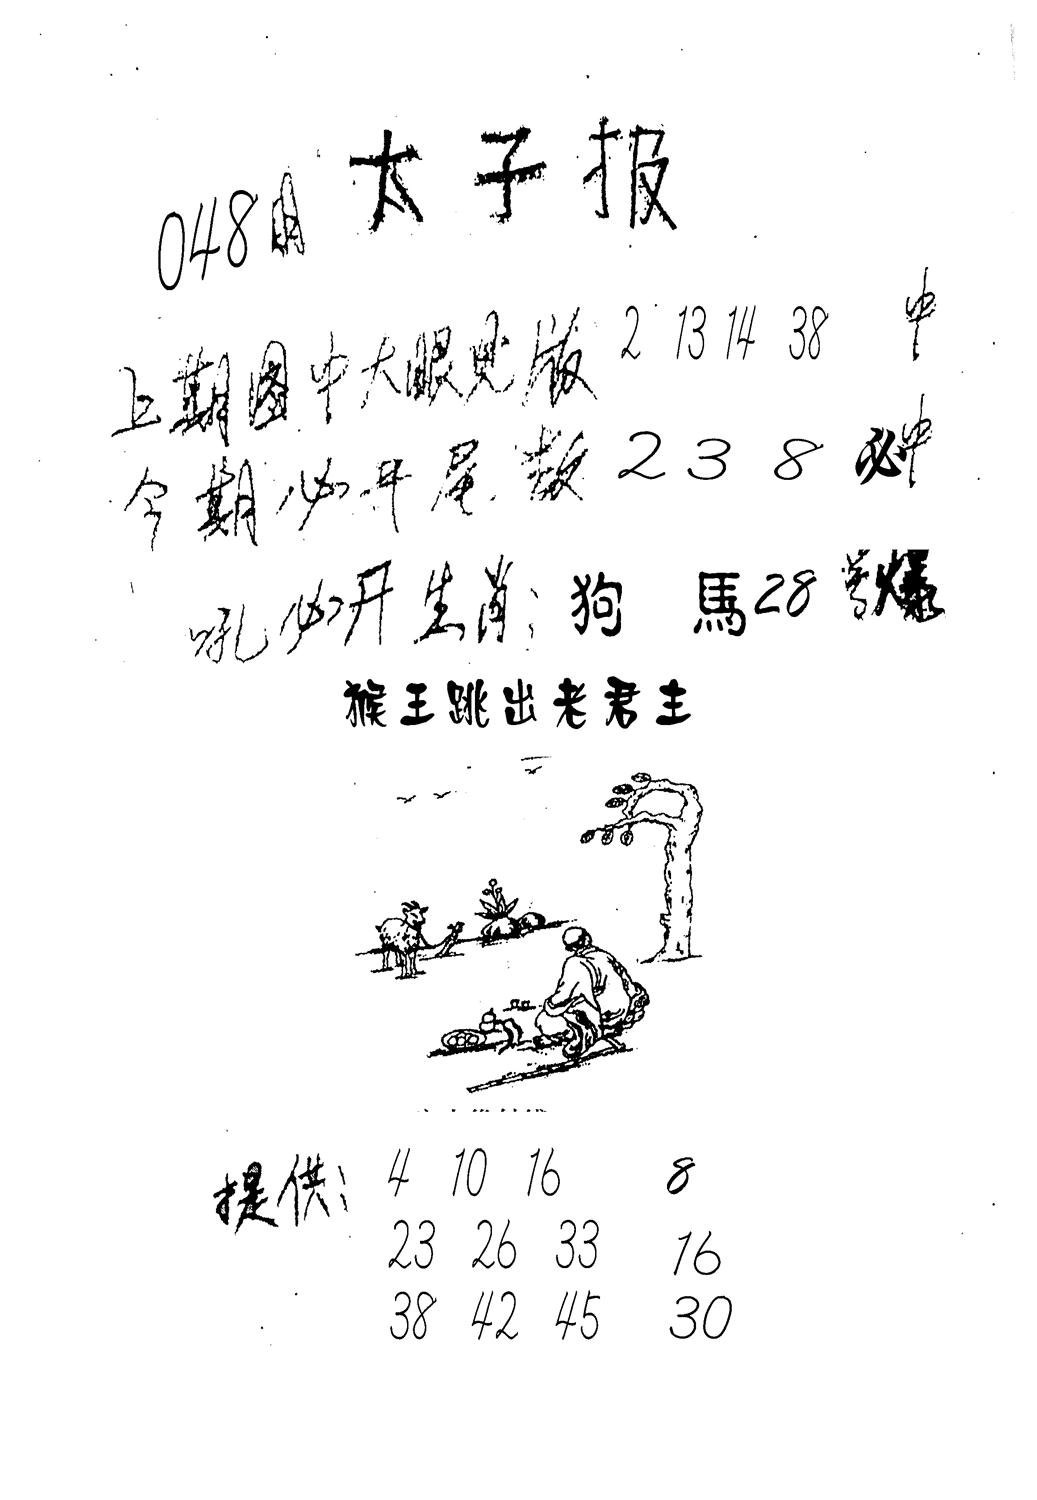 太子报
048期
上期图中大眼见版 2 13 14 38 中
今期必开尾数 2 3 8 必中
必开生肖: 狗 馬 28 爆
猴王跳出老君主
提供: 4 10 16 8
23 26 33 16
38 42 45 30